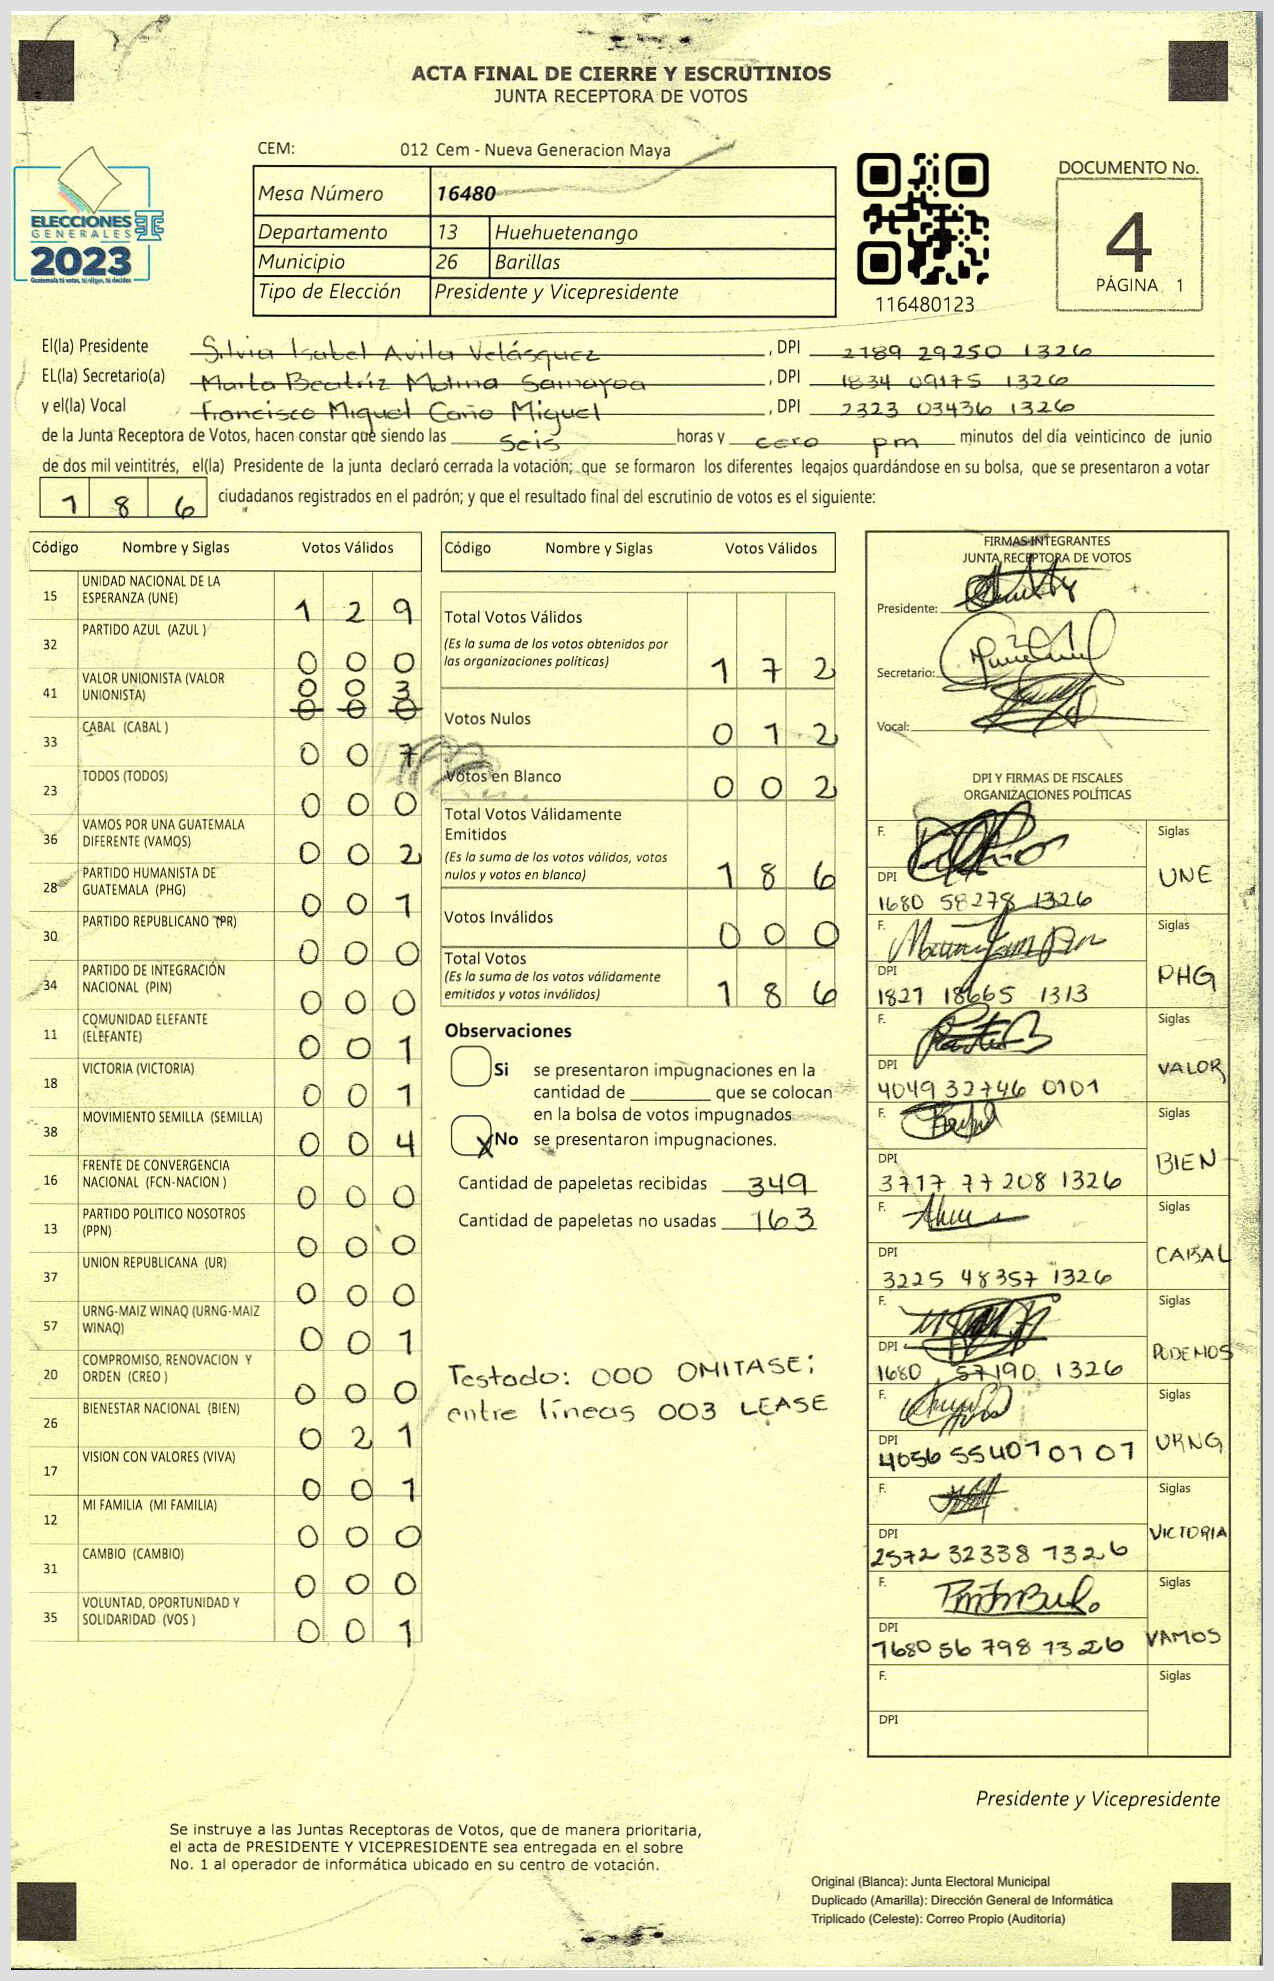 ACTA FINAL DE CIERRE Y ESCRUTINIOS
JUNTA RECEPTORA DE VOTOS
CEM: 012 Cem - Nueva Generacion Maya
Mesa Número 16480
Departamento 13 Huehuetenango
Municipio 26 Barillas
Tipo de Elección Presidente y Vicepresidente
ELECCIONES
GENERALES
2023
Guatemala tú votas, tú eliges, tú decides
116480123
DOCUMENTO No.
4
PÁGINA 1
El(la) Presidente Silvia Isabel Avila Velásquez, DPI 2189 29250 1326
EL(la) Secretario(a) Marta Beatríz Molina Samayoa, DPI 1834 09175 1326
y el(la) Vocal Francisco Miguel Caño Miguel, DPI 2323 03436 1326
de la Junta Receptora de Votos, hacen constar que siendo las seis horas y cero pm minutos del día veinticinco de junio
de dos mil veintitrés, el(la) Presidente de la junta declaró cerrada la votación; que se formaron los diferentes legajos guardándose en su bolsa, que se presentaron a votar
186 ciudadanos registrados en el padrón; y que el resultado final del escrutinio de votos es el siguiente:
Código Nombre y Siglas Votos Válidos
15 UNIDAD NACIONAL DE LA ESPERANZA (UNE) 1 2 9
32 PARTIDO AZUL (AZUL ) 0 0 0
41 VALOR UNIONISTA (VALOR UNIONISTA) 0 0 3
0 0 0
33 CABAL (CABAL ) 0 0 7
23 TODOS (TODOS) 0 0 0
36 VAMOS POR UNA GUATEMALA DIFERENTE (VAMOS) 0 0 2
28 PARTIDO HUMANISTA DE GUATEMALA (PHG) 0 0 1
30 PARTIDO REPUBLICANO (PR) 0 0 0
34 PARTIDO DE INTEGRACIÓN NACIONAL (PIN) 0 0 0
11 COMUNIDAD ELEFANTE (ELEFANTE) 0 0 1
18 VICTORIA (VICTORIA) 0 0 1
38 MOVIMIENTO SEMILLA (SEMILLA) 0 0 4
16 FRENTE DE CONVERGENCIA NACIONAL (FCN-NACION ) 0 0 0
13 PARTIDO POLITICO NOSOTROS (PPN) 0 0 0
37 UNION REPUBLICANA (UR) 0 0 0
57 URNG-MAIZ WINAQ (URNG-MAIZ WINAQ) 0 0 1
20 COMPROMISO, RENOVACION Y ORDEN (CREO ) 0 0 0
26 BIENESTAR NACIONAL (BIEN) 0 2 1
17 VISION CON VALORES (VIVA) 0 0 1
12 MI FAMILIA (MI FAMILIA) 0 0 0
31 CAMBIO (CAMBIO) 0 0 0
35 VOLUNTAD, OPORTUNIDAD Y SOLIDARIDAD (VOS ) 0 0 1
Código Nombre y Siglas Votos Válidos
Total Votos Válidos
(Es la suma de los votos obtenidos por
las organizaciones políticas) 1 7 2
Votos Nulos 0 1 2
Votos en Blanco 0 0 2
Total Votos Válidamente
Emitidos
(Es la suma de los votos válidos, votos
nulos y votos en blanco) 1 8 6
Votos Inválidos 0 0 0
Total Votos
(Es la suma de los votos válidamente
emitidos y votos inválidos) 1 8 6
Observaciones
Si se presentaron impugnaciones en la
cantidad de ________ que se colocan
en la bolsa de votos impugnados
X No se presentaron impugnaciones.
Cantidad de papeletas recibidas 349
Cantidad de papeletas no usadas 163
Testado: 000 OMITASE;
entre líneas 003 LEASE
FIRMAS INTEGRANTES
JUNTA RECEPTORA DE VOTOS
Presidente:
Secretario:
Vocal:
DPI Y FIRMAS DE FISCALES
ORGANIZACIONES POLÍTICAS
F. Siglas
DPI 1680 58278 1326 UNE
F. Siglas
DPI 1827 18665 1313 PHG
F. Siglas
DPI 4049 32746 0101 VALOR
F. Siglas
DPI 3717 77208 1326 BIEN
F. Siglas
DPI 3225 48357 1326 CABAL
F. Siglas
DPI 1680 57190 1326 PODEMOS
F. Siglas
DPI 4056 55407 0101 URNG
F. Siglas
DPI 2572 32338 1326 VICTORIA
F. Siglas
DPI 1680 56798 1326 VAMOS
F. Siglas
DPI
Presidente y Vicepresidente
Se instruye a las Juntas Receptoras de Votos, que de manera prioritaria,
el acta de PRESIDENTE Y VICEPRESIDENTE sea entregada en el sobre
No. 1 al operador de informática ubicado en su centro de votación.
Original (Blanca): Junta Electoral Municipal
Duplicado (Amarilla): Dirección General de Informática
Triplicado (Celeste): Correo Propio (Auditoría)